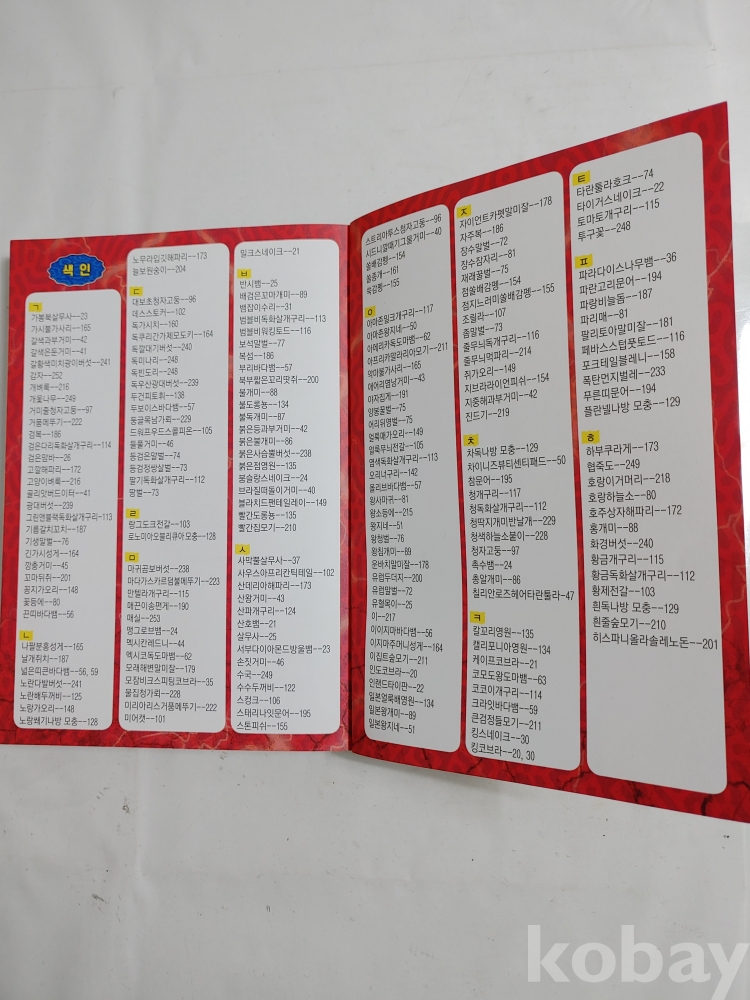 색인
ㄱ
가봉북살무사--23
가시불가사리--165
갈색과부거미--42
갈색은둔거미--41
갈황색미치광이버섯--241
감자--252
개벼룩--216
개꽃나무--249
거미줄청자고둥--97
거품메뚜기--222
검복--186
검은다리독화살개구리--114
검은맘바--26
고깔해파리--172
고양이벼룩--216
골리앗버드이터--41
광대버섯--239
그린앤블랙독화살개구리--113
기름갈치꼬치--187
기생말벌--76
긴가시성게--164
깡충거미--45
꼬마뒤쥐--201
꽁지가오리--148
꽃등에--80
끈띠바다뱀--56
ㄴ
나팔분홍성게--165
날개쥐치--187
넓은띠큰바다뱀--56, 59
노란다발버섯--241
노란배두꺼비--125
노랑가오리--148
노랑쐐기나방 모충--128
노무라입깃해파리--173
늘보원숭이--204
ㄷ
대보초청자고둥--96
데스스토커--102
독가시치--160
독쿠리간가제모도키--164
독깔대기버섯--240
독미나리--248
독빈도리--248
독우산광대버섯--239
두건피토휘--193
두보이스바다뱀--57
둥글목남가뢰--229
드워프우드스콜피온--105
들물거미--46
등검은말벌--74
등검정쌍살벌--73
딸기독화살개구리--112
땅벌--73
ㄹ
람그도크전갈--103
로노미아오블리큐아 모충--128
ㅁ
마귀곰보버섯--238
마다가스카르덤불메뚜기--223
만텔라개구리--115
매끈이송편게--190
매실--253
맹그로브뱀--24
멕시칸레드니--44
멕시코독도마뱀--62
모래해변말미잘--179
모잠비크스피팅코브라--35
물집청가뢰--228
미리아리스거품메뚜기--222
미어캣--101
밀크스네이크--21
ㅂ
반시뱀--25
배검은꼬마개미--89
뱀잡이수리--31
범블비독화살개구리--113
범블비워킹토드--116
보석말벌--77
복섬--186
부리바다뱀--57
북부짧은꼬리땃쥐--200
불개미--88
불도롱뇽--134
불독개미--87
붉은등과부거미--42
붉은불개미--86
붉은사슴뿔버섯--238
붉은점영원--135
붐슬랑스네이크--24
브라질떠돌이거미--40
블라치드팬테일레이--149
빨간도롱뇽--135
빨간집모기--210
ㅅ
사막뿔살무사--37
사우스아프리칸틱테일--102
산데리아해파리--173
산왕거미--43
산파개구리--124
산호뱀--21
살무사--25
서부다이아몬드방울뱀--23
손짓거미--46
수국--249
수수두꺼비--122
스컹크--106
스태리나잇문어--195
스톤피쉬--155
스트리아투스청자고둥--96
시드니깔때기그물거미--40
쏠배감펭--154
쏠종개--161
쑥감펭--155
ㅇ
아마존밀크개구리--117
아마존왕지네--50
아메리카독도마뱀--62
아프리카말라리아모기--211
악마불가사리--165
에어리염낭거미--43
여자집게--191
양봉꿀벌--75
어리뒤영벌--75
얼룩매가오리--149
얼룩무늬전갈--105
염색독화살개구리--113
오리너구리--142
올리브바다뱀--56
왕사마귀--81
왕소등에--215
왕지네--51
왕청벌--76
왕침개미--89
운바치말미잘--178
유럽두더지--200
유럽땅벌--72
유혈목이--25
이--217
이이지마바다뱀--56
이지마주머니성게--164
이집트숲모기--211
인도코브라--20
인랜드타이판--22
일본얼룩배영원--134
일본왕개미--89
일본왕지네--51
ㅈ
자이언트카펫말미잘--178
자주복--186
장수말벌--72
장수잠자리--81
재래꿀벌--75
점쏠배감펭--154
정지느러미쏠배감펭--155
조릴라--107
좀말벌--72
줄무늬독개구리--116
줄무늬먹파리--214
쥐가오리--149
지브라라이언피쉬--154
지중해과부거미--42
진드기--219
ㅊ
차독나방 모충--129
차이니즈뷰티센티패드--50
참문어--195
청개구리--117
청독화살개구리--112
청딱지개미반날개--229
청색하늘소붙이--228
청자고둥--97
촉수뱀--24
총알개미--86
칠리안로즈헤어타란툴라--47
ㅋ
칼꼬리영원--135
캘리포니아영원--134
케이프코브라--21
코모도왕도마뱀--63
코코이개구리--114
크라잇바다뱀--58
큰검정들모기--211
킹스네이크--30
킹코브라--20, 30
ㅌ
타란툴라호크--74
타이거스네이크--22
토마토개구리--115
투구꽃--248
ㅍ
파라다이스나무뱀--36
파란고리문어--194
파랑비늘돔--187
파리매--81
팔리토아말미잘--181
페바스스텁풋토드--116
포크테일블레니--158
폭탄먼지벌레--233
푸른띠문어--194
플란넬나방 모충--129
ㅎ
하부쿠라게--173
협죽도--249
호랑이거머리--218
호랑하늘소--80
호주상자해파리--172
홍개미--88
화경버섯--240
황금개구리--115
황금독화살개구리--112
황제전갈--103
흰독나방 모충--129
흰줄숲모기--210
히스파니올라솔레노돈--201
kobay